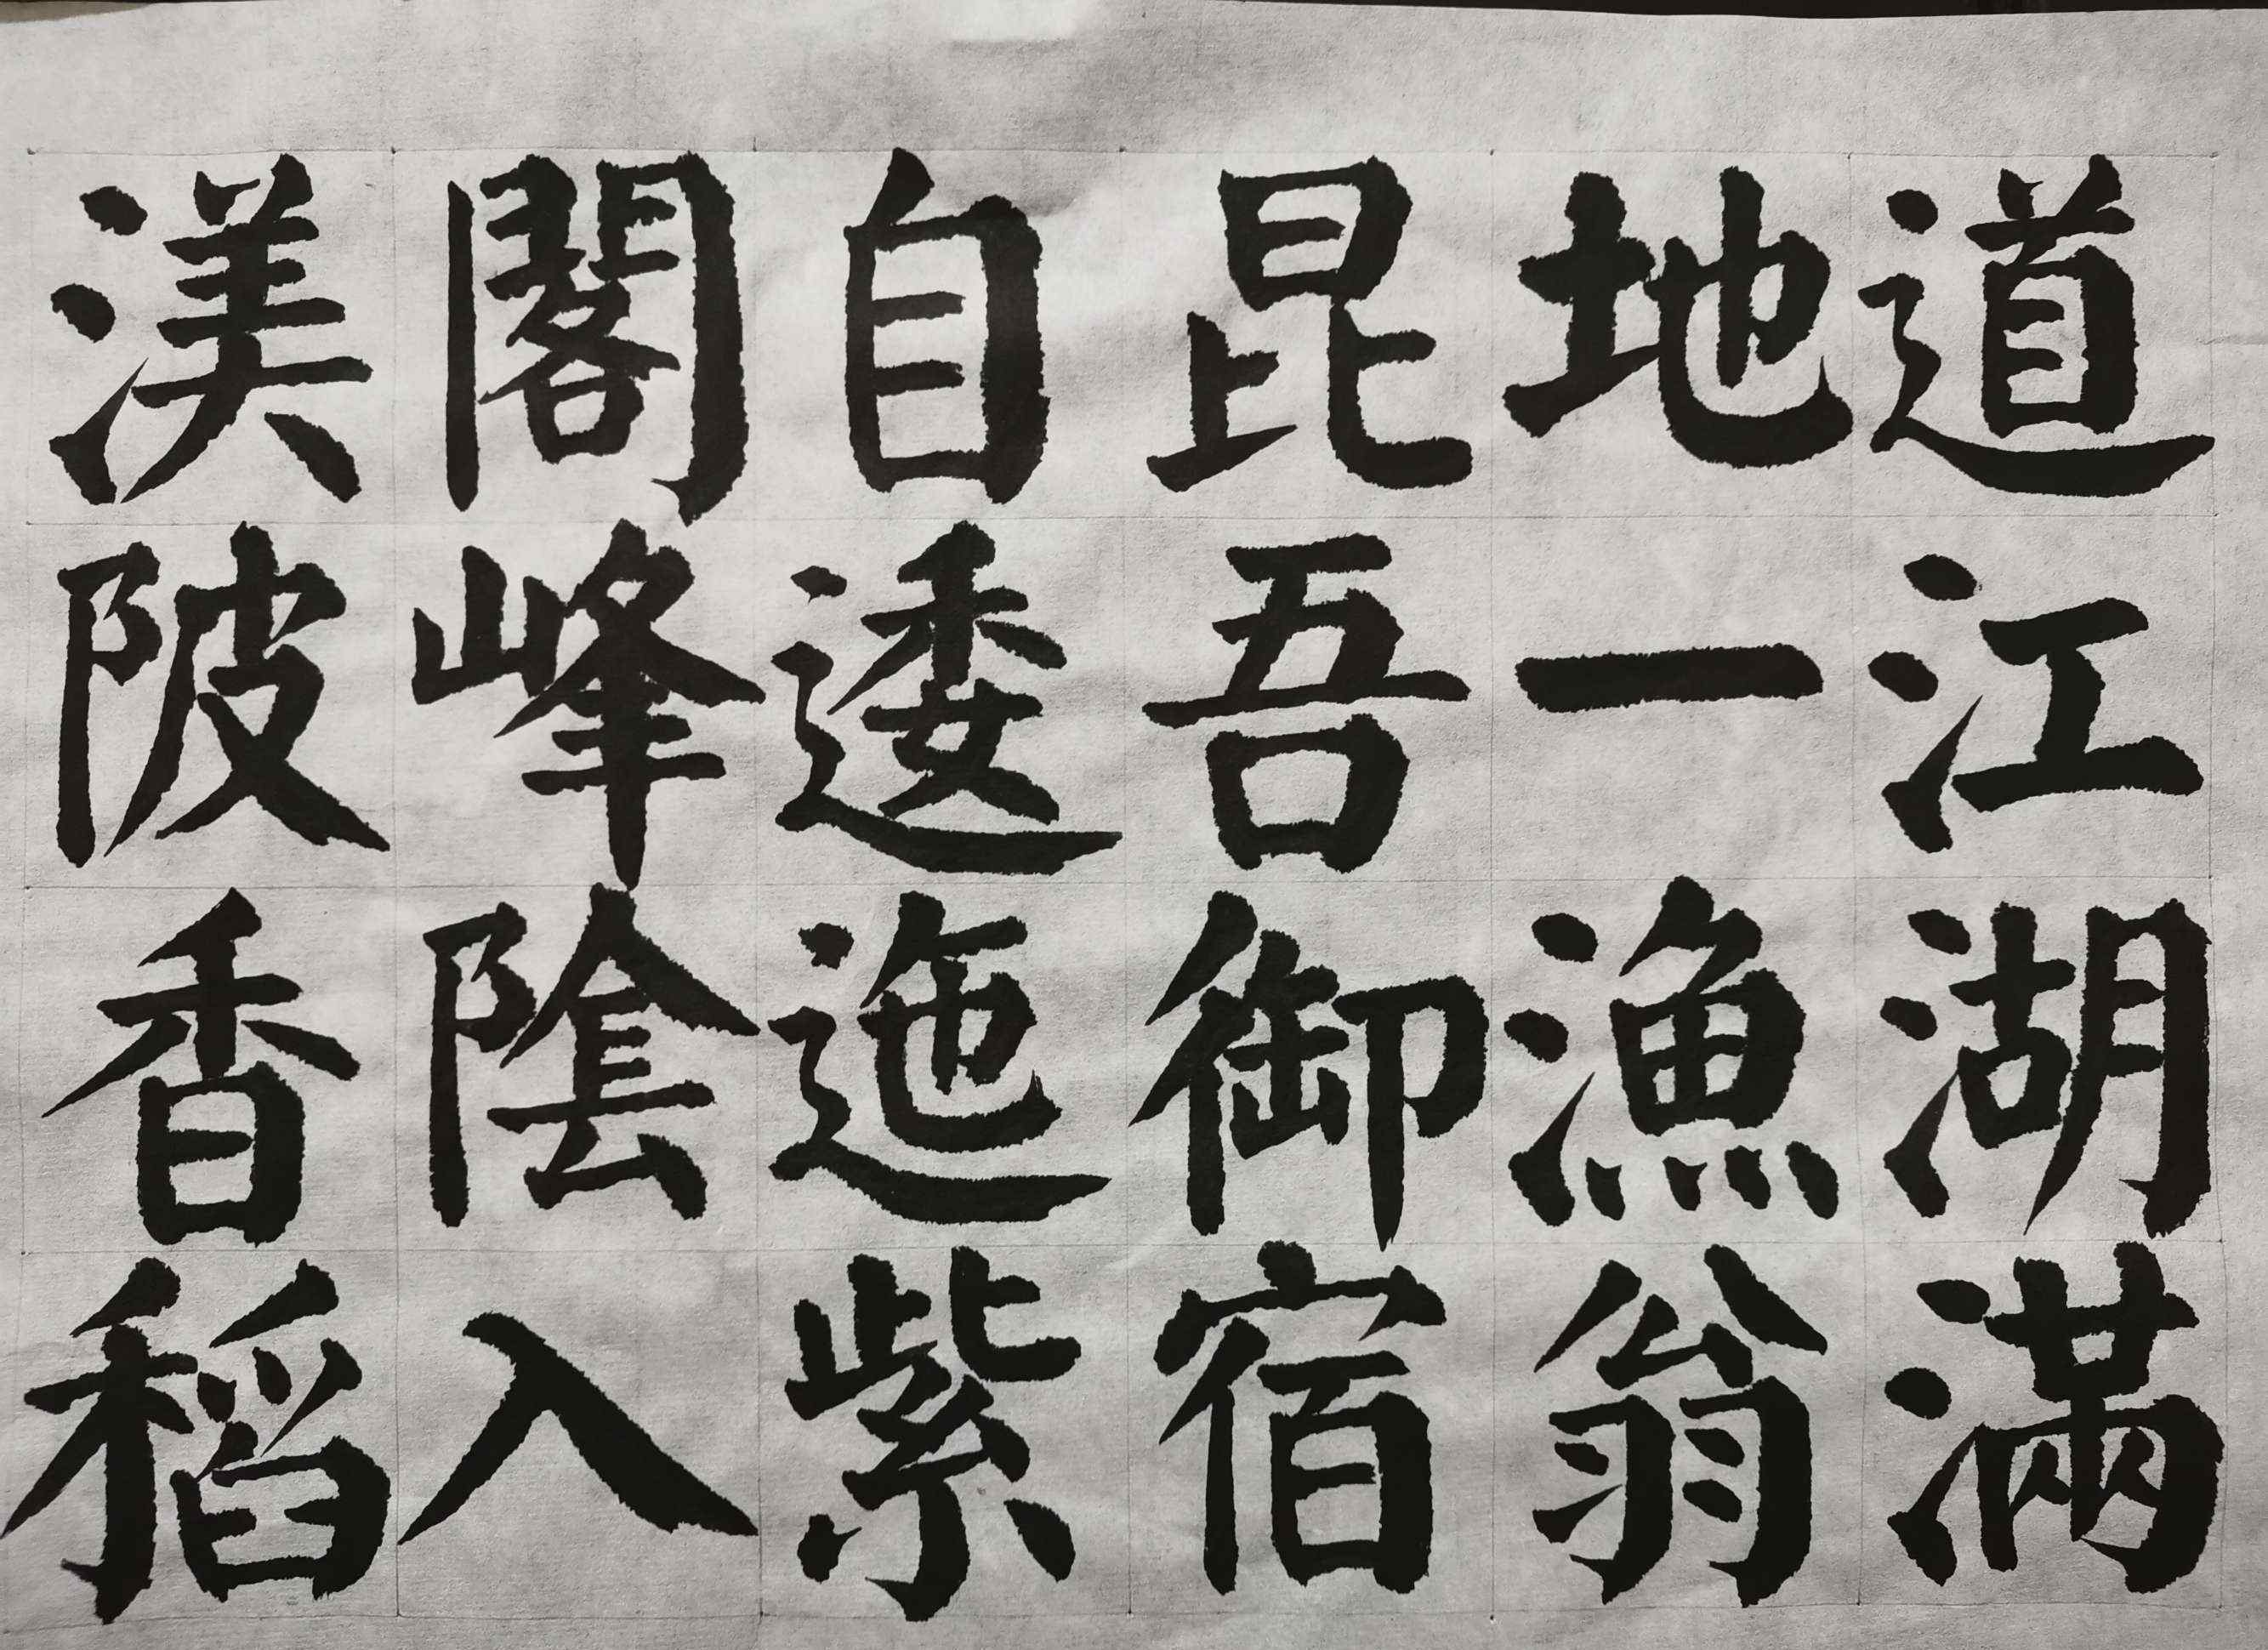 道江湖滿
地一漁翁
昆吾御宿
自逶迤紫
閣峰陰入
渼陂香稻